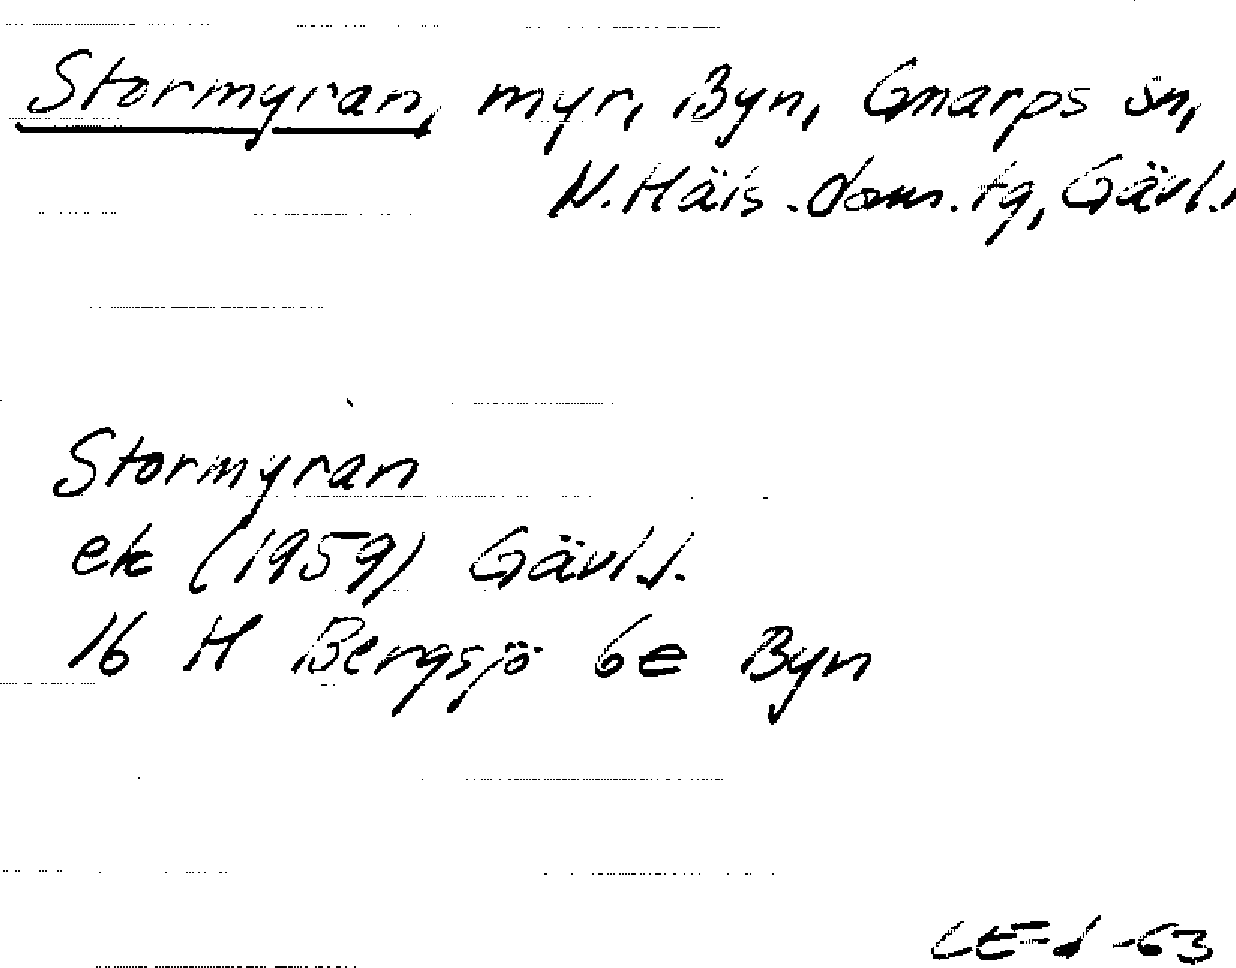 Stormyran, myr, Byn, Gnarps sn,
N. Häls. doms. tg, Gävl. l.
Stormyran
ek (1959) Gävl. l.
16 H Bergsjö 6e Byn
-63